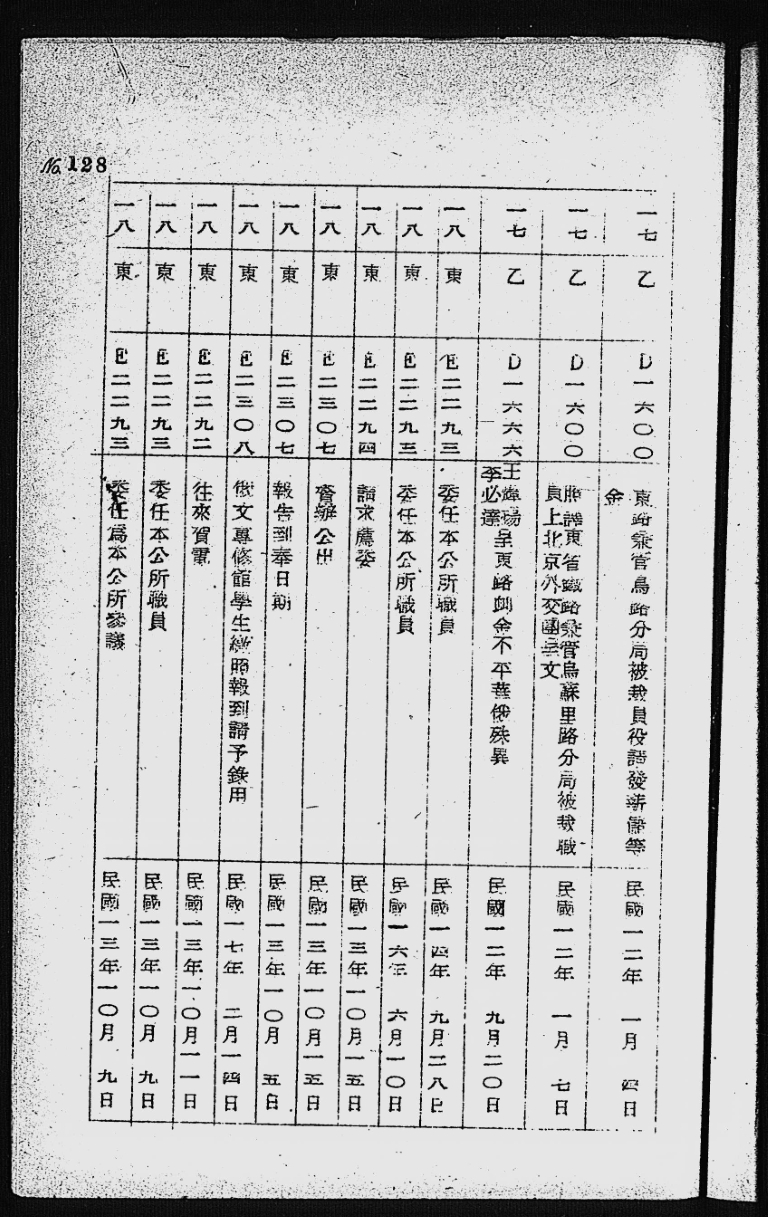 No. 128
一七 乙 D一六〇〇 東路兼管烏路分局被裁員役請發薪儲等金 民國一二年 一月 四日
一七 乙 D一六〇〇 照譯東省鐵路兼管烏蘇里路分局被裁職員上北京外交團呈文 民國一二年 一月 七日
一七 乙 D一六六六 王輝瑒李必達呈東路 金不平華俄殊異 民國一二年 九月二〇日
一八 東 E二二九三 委任本公所職員 民國一四年 九月二八日
一八 東 E二二九三 委任本公所職員 民國一六年 六月一〇日
一八 東 E二二九四 請求薦委 民國一三年一〇月一五日
一八 東 E二三〇七 辦公出 民國一三年一〇月一五日
一八 東 E二三〇七 報告到奉日期 民國一三年一〇月 五日
一八 東 E二三〇八 俄文專修館學生繳照報到請予錄用 民國一七年 二月一四日
一八 東 E二二九二 往來賀電 民國一三年一〇月一一日
一八 東 E二二九三 委任本公所職員 民國一三年一〇月 九日
一八 東 E二二九三 委任為本公所參議 民國一三年一〇月 九日